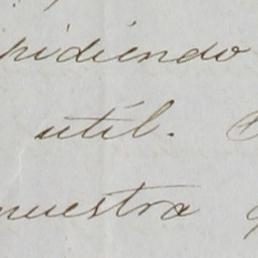 pidiendo
util.
muestra